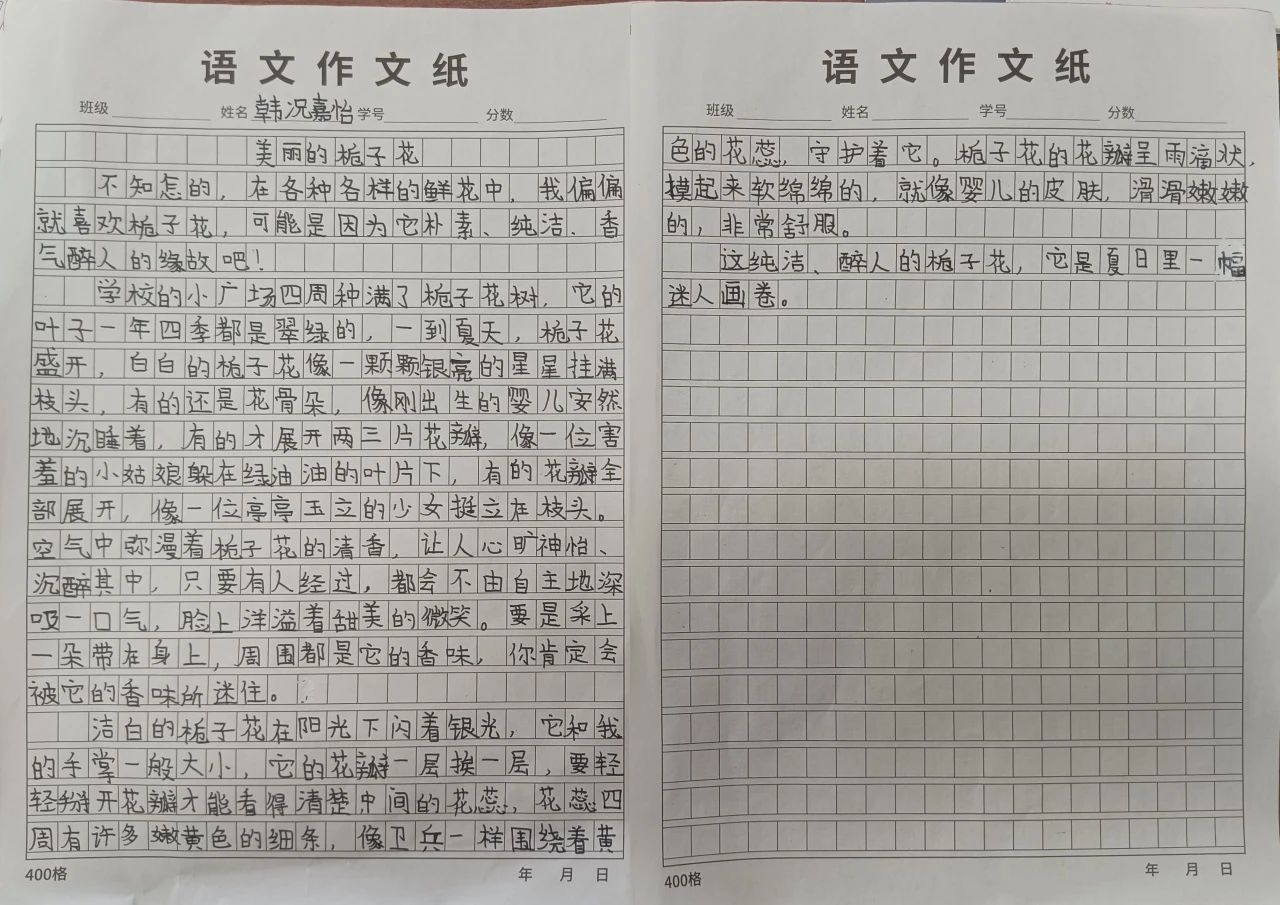 语文作文纸
班级 姓名 韩况嘉怡 学号 分数
美丽的栀子花
不知怎的，在各种各样的鲜花中，我偏偏
就喜欢栀子花，可能是因为它朴素、纯洁、香
气醉人的缘故吧！
学校的小广场四周种满了栀子花树，它的
叶子一年四季都是翠绿的，一到夏天，栀子花
盛开，白白的栀子花像一颗颗银亮的星星挂满
枝头，有的还是花骨朵，像刚出生的婴儿安然
地沉睡着，有的才展开两三片花瓣，像一位害
羞的小姑娘躲在绿油油的叶片下，有的花瓣全
部展开，像一位亭亭玉立的少女挺立在枝头。
空气中弥漫着栀子花的清香，让人心旷神怡、
沉醉其中，只要有人经过，都会不由自主地深
吸一口气，脸上洋溢着甜美的微笑。要是采上
一朵带在身上，周围都是它的香味，你肯定会
被它的香味所迷住。
洁白的栀子花在阳光下闪着银光，它和我
的手掌一般大小，它的花瓣一层挨一层，要轻
轻掰开花瓣才能看得清楚中间的花蕊，花蕊四
周有许多嫩黄色的细条，像卫兵一样围绕着黄
400格 年 月 日
语文作文纸
班级 姓名 学号 分数
色的花蕊，守护着它。栀子花的花瓣呈雨滴状，
摸起来软绵绵的，就像婴儿的皮肤，滑滑嫩嫩
的，非常舒服。
这纯洁、醉人的栀子花，它是夏日里一幅
迷人画卷。
400格 年 月 日